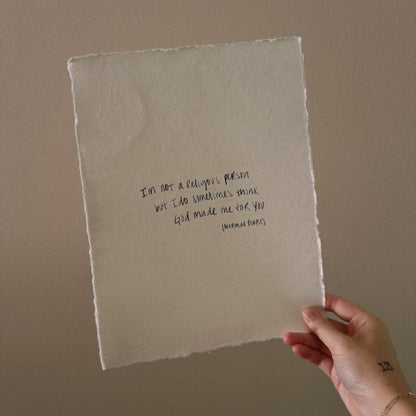 I'm not a religious person
but I do sometimes think
God made me for you
(normal people)
13